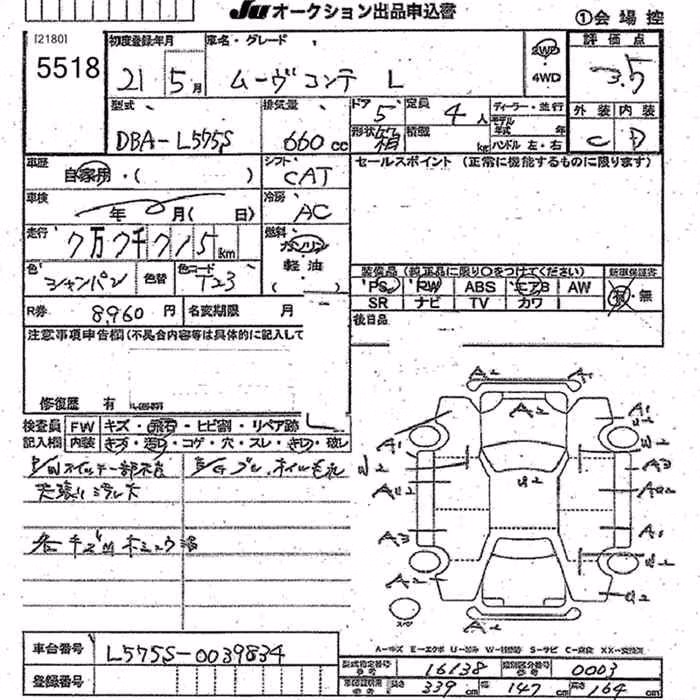 JU オークション出品申込書
①会場控
[2180]
5518
初度登録年月
21 5月
車名・グレード
ムーヴコンテ L
2WD
4WD
評価点
3.5
型式
DBA-L575S
排気量
660 cc
ドア 5
定員 4人
ディーラー・並行
形状 箱
積載 kg
モデル年式 年
ハンドル 左・右
外装 内装
C D
車歴
自家用・( )
シフト
CAT
セールスポイント (正常に機能するものに限ります)
車検
年 月( 日)
冷房
AC
走行
7万7千715 km
燃料
ガソリン
軽油
色
シャンパン
色替
色コード
T23
装備品 (純正品に限り○をつけてください)
新車保証書
PS RW ABS エアB AW
SR ナビ TV カワ
有・無
R券 8,960円
名変期限 月
後日品
注意事項申告欄(不具合内容等は具体的に記入して
修復歴 有
検査員 FW キズ・飛石・ヒビ割・リペア跡
記入欄 内装 キズ・汚れ・コゲ・穴・スレ・キレ・破レ
P/Wスイッチ一部不良
E/Gブレ、オイルもれ
天張りシミ
各キズ凹
A2 A1
A2
A1 A1
W2 W2
A3
U2
AU2
A3 A1
A2 W2
U2
A2
スペア
A-キズ E-エクボ U-凹み W-補修跡 S-サビ C-腐食 XX-交換済
車台番号 L575S-0039834
型式指定番号 16138
類別区分番号 0003
登録番号
長さ 339 cm 幅 147 cm 高さ 164 cm